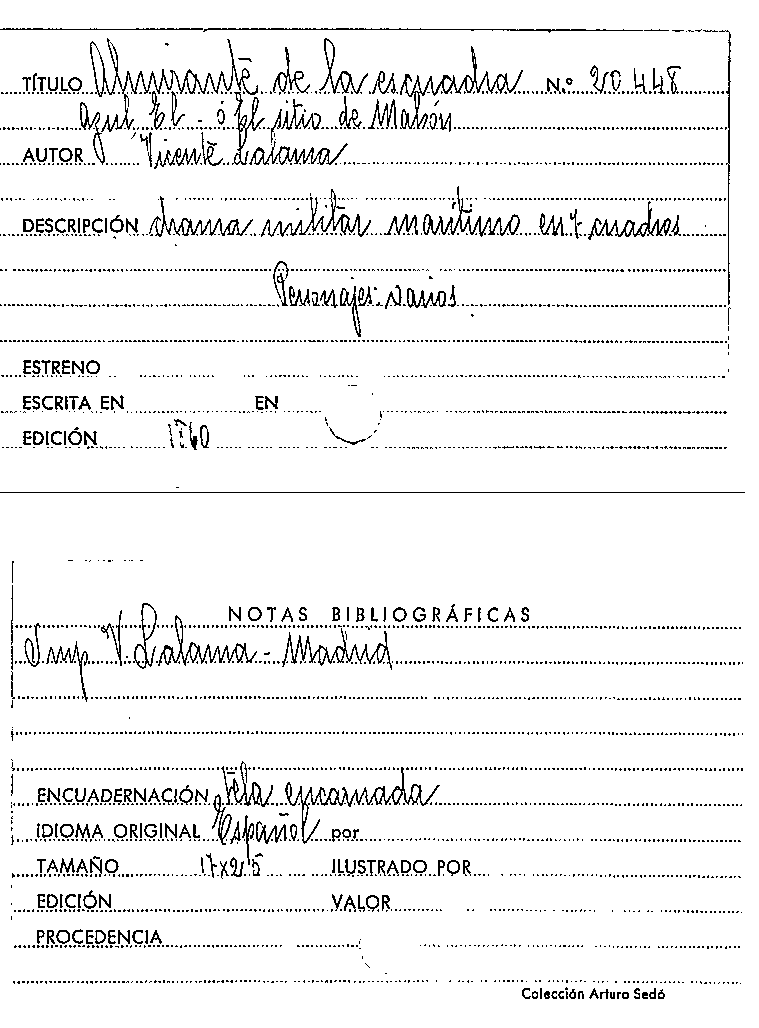 TÍTULO Almirante de la escuadra N.º 20448
azul, El - ó El sitio de Mahón
AUTOR Vicente Lalama
DESCRIPCIÓN drama militar marítimo en 7 cuadros
Personajes: varios.
ESTRENO
ESCRITA EN EN
EDICIÓN
NOTAS BIBLIOGRÁFICAS
Imp V. Lalama - Madrid
ENCUADERNACIÓN tela encarnada
IDIOMA ORIGINAL Español por
TAMAÑO 17x2'5 ILUSTRADO POR
EDICIÓN VALOR
PROCEDENCIA
Colección Arturo Sedó